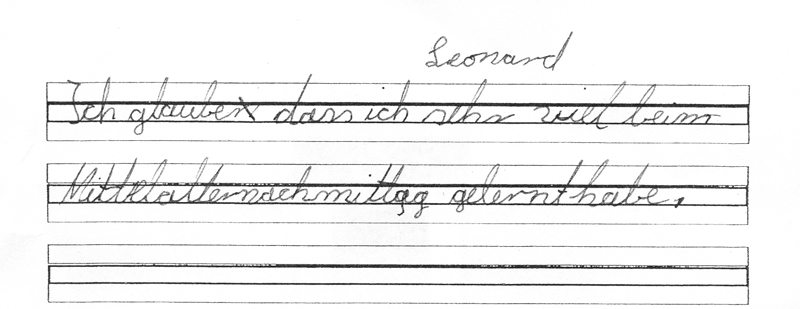 Leonard
Ich glaube dass ich sehr viel beim
Mittelalternachmittag gelernt habe.